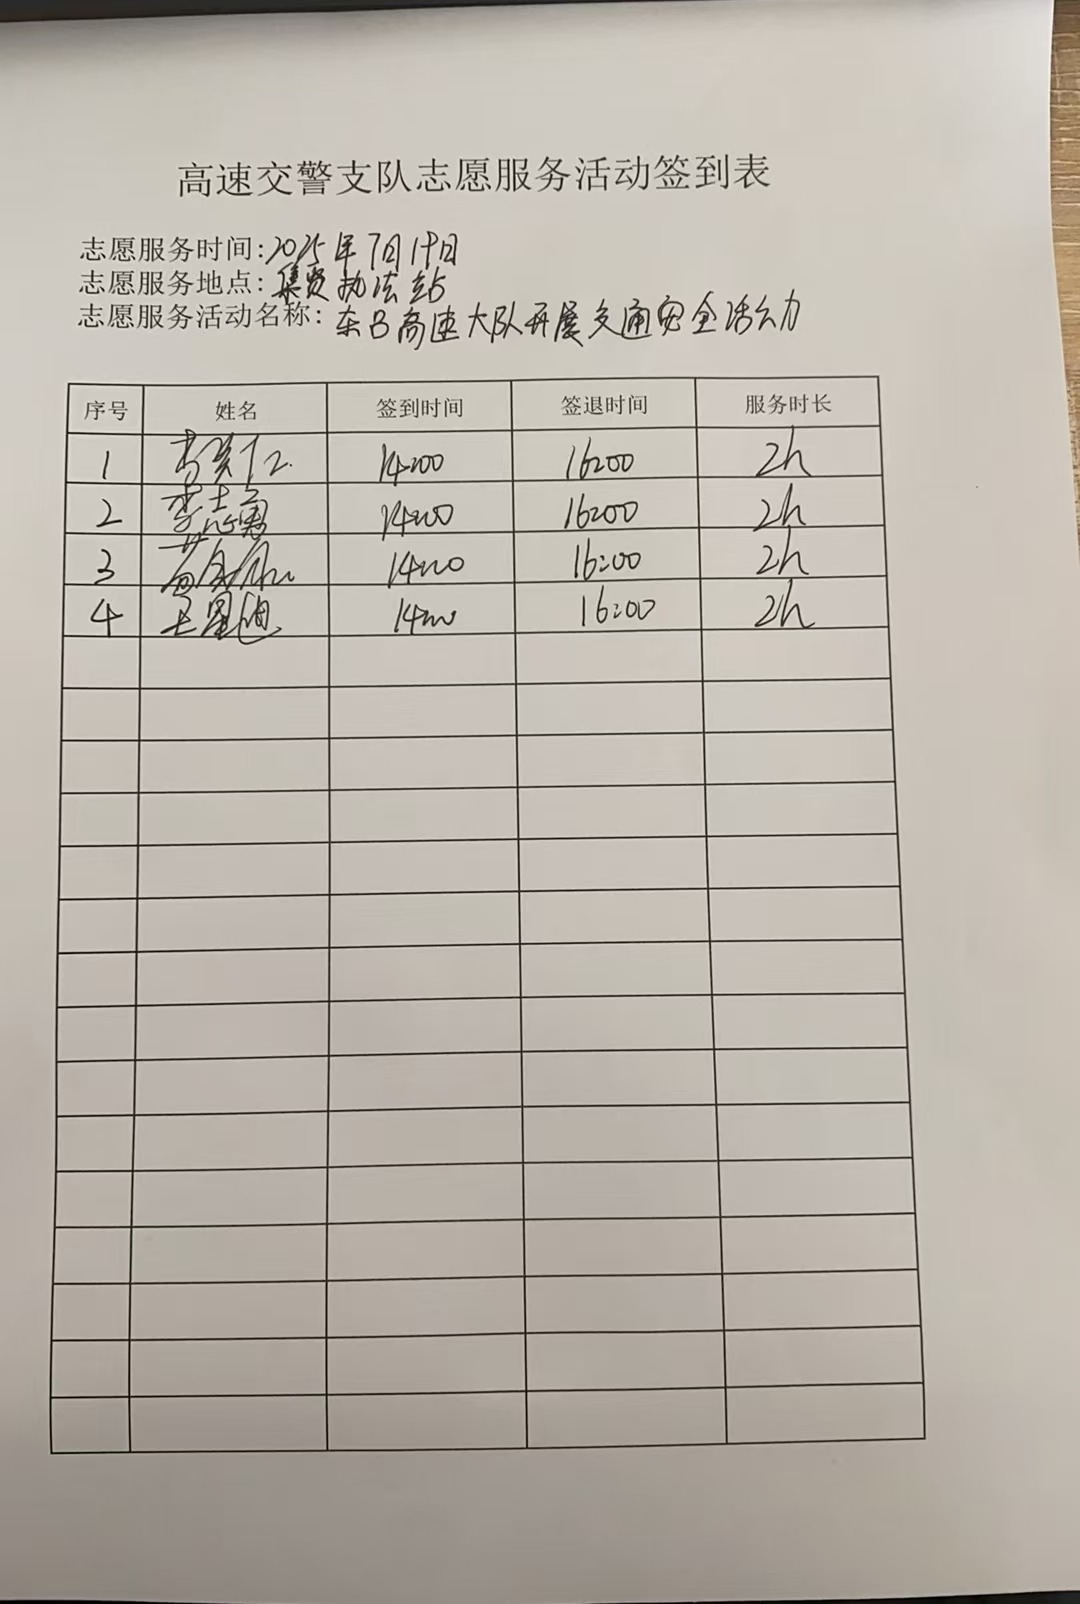 高速交警支队志愿服务活动签到表
志愿服务时间:2025年7月19日
志愿服务地点:集贤执法站
志愿服务活动名称:东吕高速大队开展交通安全活动
序号 姓名 签到时间 签退时间 服务时长
1 14:00 16:00 2h
2 李志勇 14:00 16:00 2h
3 14:00 16:00 2h
4 王星迪 14:00 16:00 2h